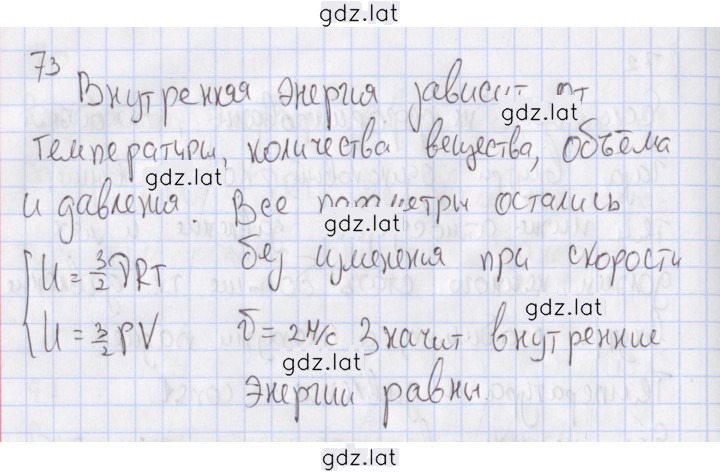 gdz.lat
73
Внутренняя энергия зависит от
gdz.lat
температуры, количества вещества, объёма
gdz.lat
и давления. Все параметры остались
gdz.lat
U = 3/2 νRT без изменения при скорости
gdz.lat
U = 3/2 PV υ = 2 м/с Значит внутренние
gdz.lat
энергии равны.
gdz.lat